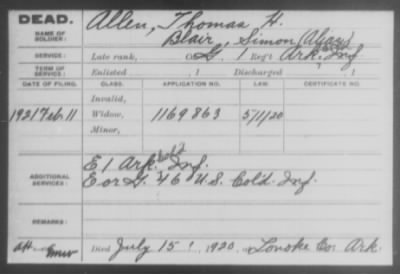 DEAD.
Allen, Thomas H.
NAME OF SOLDIER:
Blair, Simon (Alias)
SERVICE:
Late rank, Co. G. 1 Reg't Ark. Inf
TERM OF SERVICE:
Enlisted , 1 Discharged , 1
DATE OF FILING. CLASS. APPLICATION NO. LAW. CERTIFICATE NO.
Invalid,
1921 Feb. 11 Widow, 1169863 5/1/20
Minor,
ADDITIONAL SERVICES:
E 1 Ark. Cold Inf.
E or G. 46 U.S. Cold. Inf.
REMARKS:
Died July 15, 1920, at Lonoke Co. Ark.